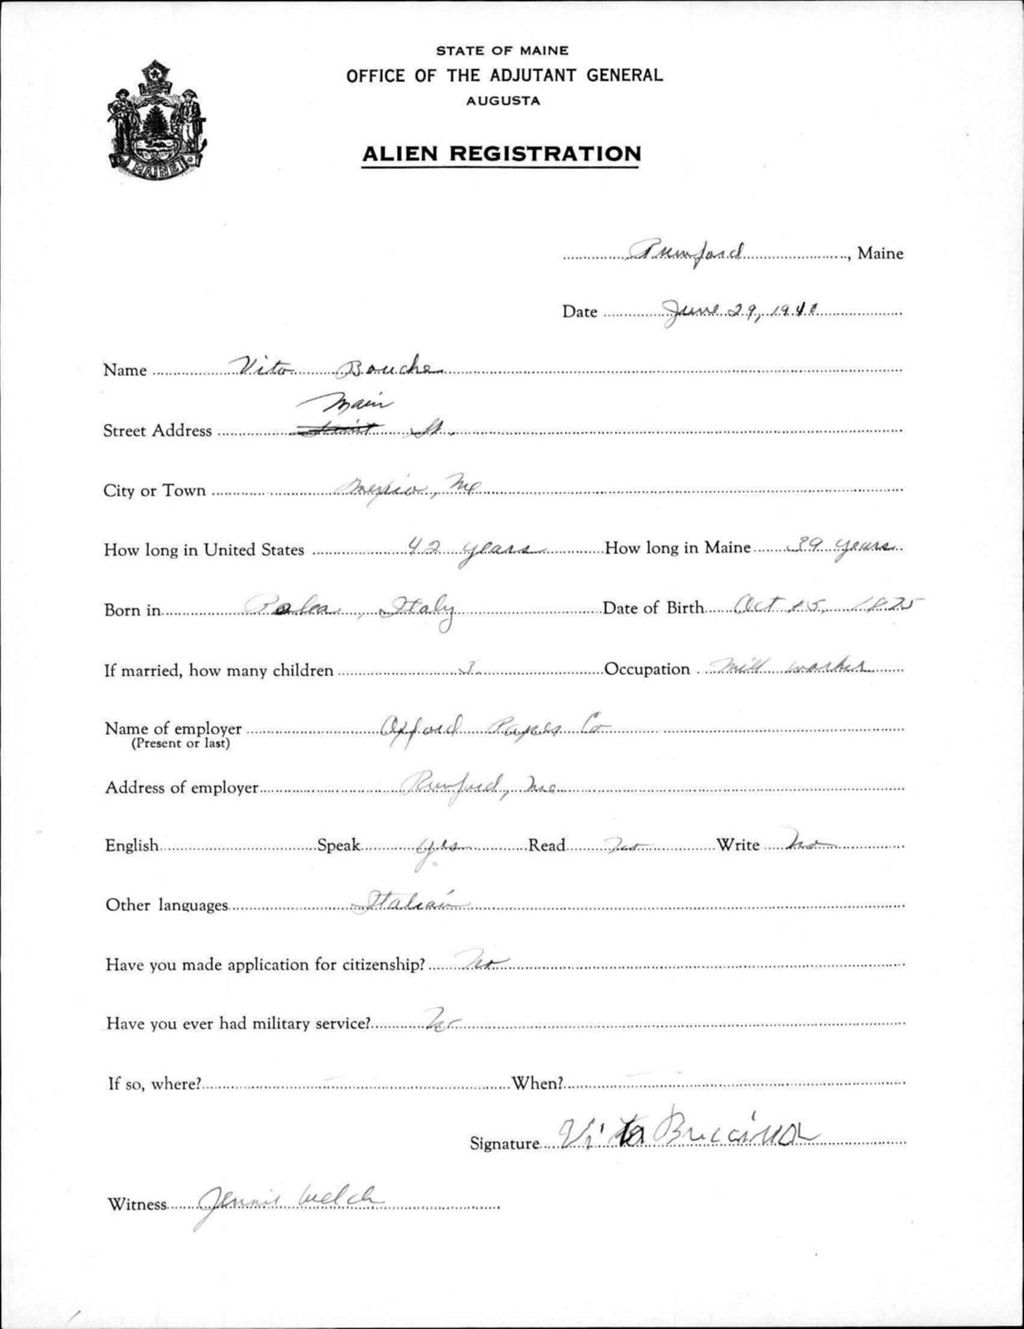 STATE OF MAINE
OFFICE OF THE ADJUTANT GENERAL
AUGUSTA
ALIEN REGISTRATION
MAINE
Rumford, Maine
Date June 29, 1940
Name Vito Bouche
Main
Street Address St.
City or Town Mexico, Me
How long in United States 42 years How long in Maine 39 years
Born in Italy Date of Birth Oct 15, 1875
If married, how many children 3. Occupation Mill worker
Name of employer Oxford Paper Co
(Present or last)
Address of employer Rumford, Me
English Speak yes Read No Write No
Other languages Italian
Have you made application for citizenship? No
Have you ever had military service? No
If so, where? When?
Signature Vito
Witness Jennie Welch